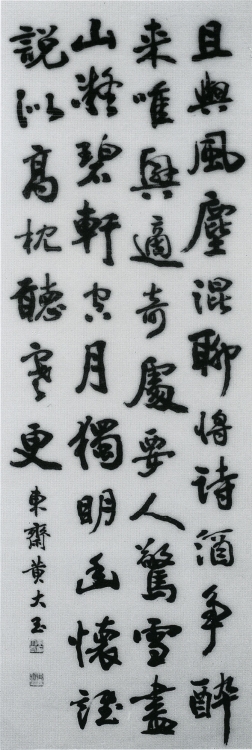 且與風塵混聊將詩酒爭酔
来唯興適奇處要人驚雪盡
山凝碧軒空月獨明幽懷誰
說似高枕聽寒更
東齋黃大玉